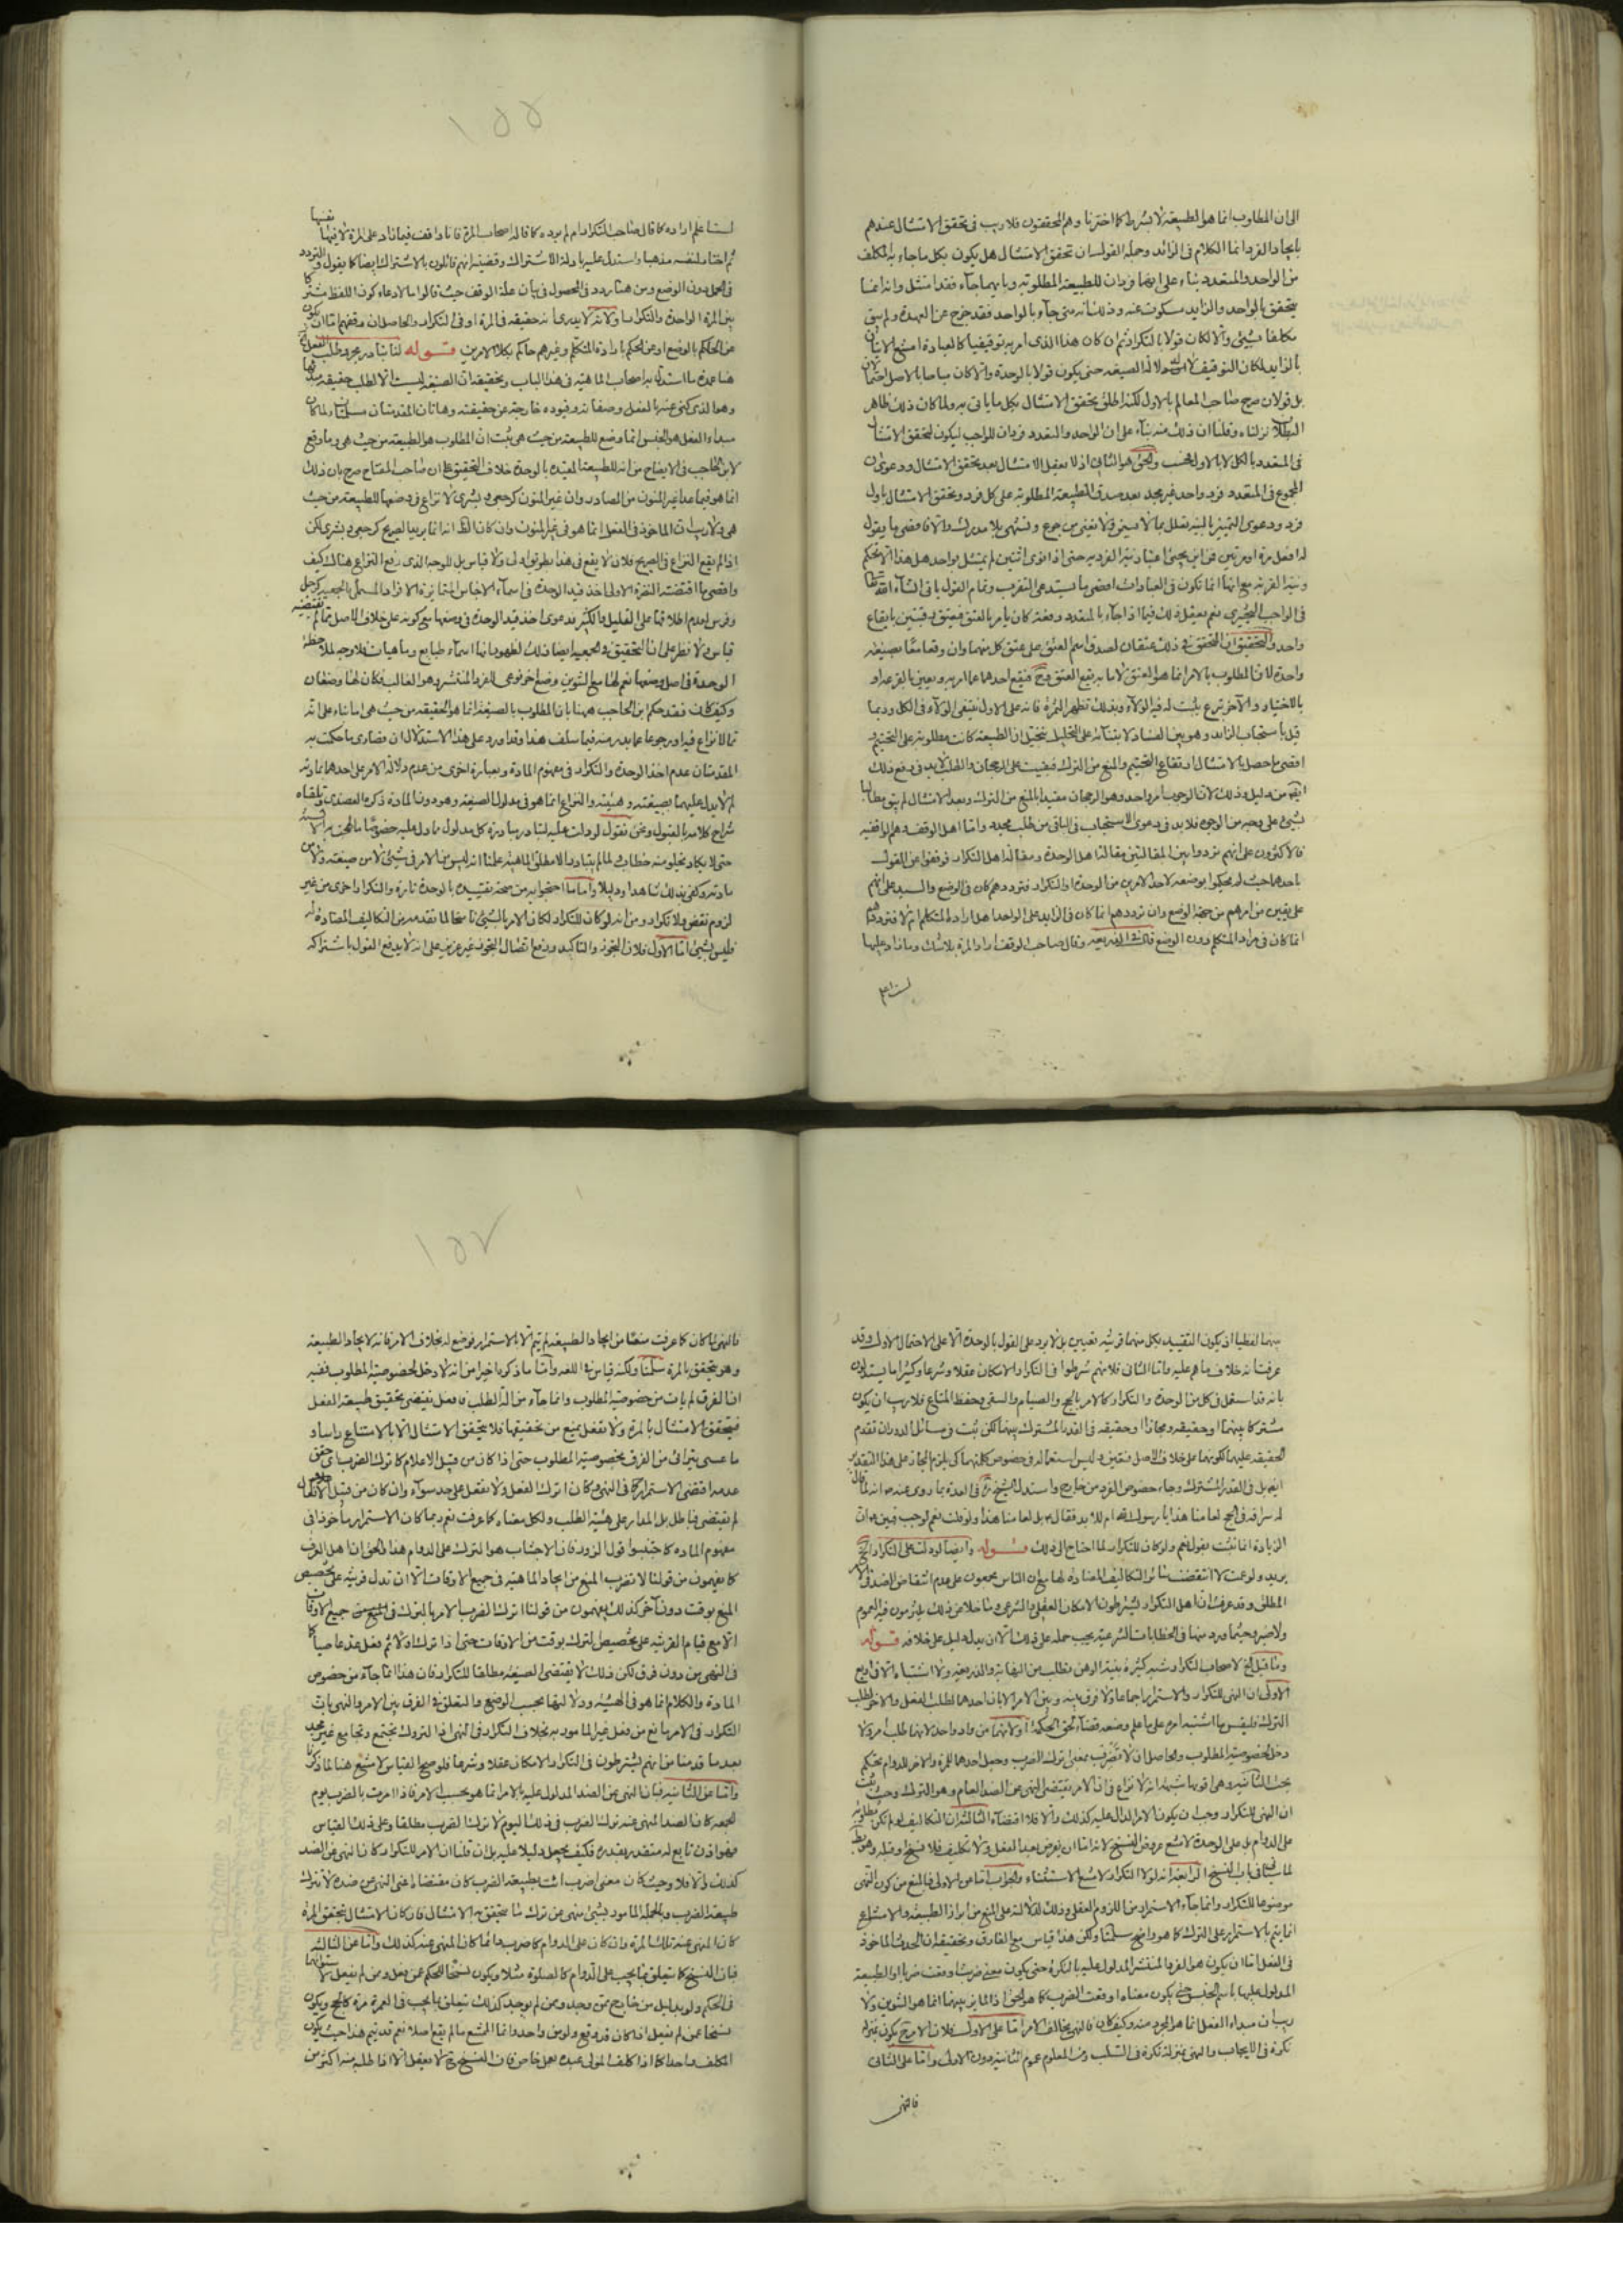 الى ان المطلوب انما هو الطبيعة لا بشرط كما اخترنا وهم المحققون فلا ريب فى تحقق الامتثال عندهم
بايجاد الفرد انما الكلام فى الزائد وجملة القول ان تحقق الامتثال هل يكون بكل ما جاء به المكلف
من الواحد والمتعدد بناء على انهما فردان للطبيعة المطلوبة وبايهما جاء فقد امتثل وانه انما
يتحقق بالواحد والزايد مسكوت عنه وذلك انه متى جاء بالواحد فقد خرج عن العهدة ولم يبق
مكلفا بشيئ والا لكان قولا بالتكرار ثم ان كان هذا الذى امر به توقيفيا كالعبادة امتنع الاتيان
بالزايد لمكان التوقيف لا لدلالة الصيغة حتى يكون قولا بالوحدة والا كان مباحا بالاصل احتمالان
بل قولان صرح صاحب المعالم بالاول لكنه اطلق تحقق الامتثال بكل ما ياتى به ولما كان ذلك ظاهر
البطلان نزلناه وقلنا ان ذلك منه بناء على ان الواحد والمتعدد فردان للواجب ليكون تحقق الامتثال
فى المتعدد بالكل لا بالاول فحسب والحق هو الثانى اذ لا يعقل الامتثال بعد تحقق الامتثال ودعوى ان
المجموع فى المتعدد فرد واحد غير مجد بعد صدق الطبيعة المطلوبة على كل فرد وتحقق الامتثال باول
فرد ودعوى التميز بالنية تعلل بما لا يسمن ولا يغنى من جوع
له افعل مرة او مرتين فمن اين يجيئ اعتبار نية الفردية حتى اذا نوى اثنتين لم يمتثل بواحد هل هذا الا تحكم
ونية القربة مع انها انما تكون فى العبادات اقصى ما يستدعى التقرب وتمام القول ياتى انشاء الله تعالى
فى الواجب التخييرى نعم يعقل ذلك فيما اذا جاء بالمتعدد دفعة كان يامر بالعتق فيعتق رقبتين بايقاع
واحد والتحقيق ان المتحقق فى ذلك عتقان لصدق اسم العتق على عتق كل منهما وان وقعا معا بصيغة
واحدة لان المطلوب بالامر انما هو العتق لا ما به يقع العتق فيقع احدهما عما امر به ويعين بالقرعة او
بالاختيار والآخر تبرع يثبت له فيه الولاء وبذلك تظهر الثمرة فانه على الاول ينتفى الولاء فى الكل وربما
قيل باستحباب الزايد وهو بين الفساد لابتنائه على التخيل
اقصى ما حصل بالامتثال ارتفاع التحتيم والمنع من الترك فبقيت على الرجحان والطلب لابد فى رفع ذلك
ايضا من دليل وذلك لان الوجوب امر واحد وهو الرجحان مقيدا بالمنع من الترك وبعد الامتثال لم يبق مطالبا
بشيئ على وجه من الوجوه فلابد فى دعوى الاستحباب فى الباقى من طلب مجدد واما اهل الوقف وهم الواقفية
فالاكثرون على انهم ترددوا بين المقالتين مقالة اهل الوحدة ومقالة اهل التكرار فوقفوا عن القول
باحدهما حيث لم يحكموا بوضعه لاحد الامرين من الوحدة او التكرار فترددهم كان فى الوضع والسيد على انهم
على يقين من امرهم من جهة الوضع وان ترددهم انما كان فى الزايد على الواحد هل اراده المتكلم ام لا فترددهم
انما كان فى مراد المتكلم دون الوضع قال فى الذريعة وقال صاحب الوقف اراد المرة بلا شك وما زاد عليها
لسنا نعلم
١٥٥
لسنا نعلم اراده كما قال صاحب التكرار ام لم يرده كما قاله اصحاب المرة فانا واقف فيما زاد على المرة لا فيها نفسها
ثم اختار لنفسه مذهبا واستدل عليه بادلة الاشتراك وقضيته انهم قائلون بالاشتراك ايضا كما يقول والتردد
فى الحمل دون الوضع ومن هنا تردد فى المحصول فى بيان علة الوقف حيث قال اما لادعاء كون اللفظ مشتركا
بين المرة الواحدة والتكرار او لانه لا يدرى انه حقيقة فى المرة او فى التكرار والحاصل ان وقفهم اما ان يكون
عن الحكم بالوضع او عن الحكم بارادة المتكلم وغيرهم حاكم بكلا الامرين قوله لنا تبادر مجرد طلب الفعل الخ
هذا عمدة ما استدل به اصحاب الماهية فى هذا الباب وتحقيقه ان الصيغة ليست الا لطلب حقيقة مبدئها
وهو الذى كنى عنه بالفعل وصفاته وقيوده خارجة عن حقيقته وهاتان المقدمتان مسلمتان ولما كان
مبداء الفعل هو الجنس انما وضع للطبيعة من حيث هى ثبت ان المطلوب هو الطبيعة من حيث هى وما وقع
لابن الحاجب فى الايضاح من انه للطبيعة المقيدة بالوحدة خلاف التحقيق على ان صاحب المفتاح صرح بان ذلك
انما هو فيما عدا غير المنون من المصادر وان غير المنون كرجعى وبشرى لا نزاع فى وضعها للطبيعة من حيث
هى ولا ريب ان الماخوذ فى الفعل انما هو فى غير المنون وان كان الظ انه انما يريد الصريح كرجعى وبشرى لكن
اذا لم يقع النزاع فى الصريح فلان لا يقع فى هذا بطريق اولى ولا قياس بل للوجه الذى رفع النزاع هناك كيف
واقصى ما اقتضته التفرقة الاولى اخذ قيد الوحدة فى اسماء الاجناس المتمايزة الافراد
وفرس لعدم اطلاقها على القليل والكثير فدعوى اخذ قيد الوحدة فى وضعها مع كونه على خلاف الاصل مما لم يقتضيه
قياس ولا نظر على ان التحقيق
الوحدة فى اصل وضعها نعم لها مع التنوين وضع اخر نوعى للفرد المنتشر وهو الغالب فكان لها وضعان
وكيف كان فقد حكم ابن الحاجب ههنا بان المطلوب بالصيغة انما هو الحقيقة من حيث هى اما بناء على انه
مما لا نزاع فيه او رجوعا عما بدر منه فيما سلف هذا وقد اورد على هذا الاستدلال ان قصارى ما حكمت به
المقدمتان عدم اخذ الوحدة والتكرار فى مفهوم المادة وبعبارة اخرى من عدم دلالة الامر على احدهما بمادته
لم لا يدل عليهما بصيغته وهيئته والنزاع انما هو فى مدلول الصيغة وهو دون المادة ذكره العضدى وتلقاه
شراح كلامه بالقبول ونحن نقول لو دلت عليه لتبادر
حتى لا يكاد يخلو منه خطاب ولما لم يتبادر الا مطلق الماهية علمنا انه ليس من الامر فى شيئ لا من صيغته ولا من
مادته وكفى بذلك شاهدا ودليلا واما ما احتجوا به من صحة تقييده بالوحدة تارة والتكرار اخرى من غير
لزوم نقض ولا تكرار ومن انه لو كان للتكرار لكان الامر بالشيئ ناسخا لما تقدمه من التكاليف المضادة له
فليس بشيئ اما الاول فلان التجوز والتاكيد ورفع احتمال التجوز غير عزيز على انه لا يدفع القول باشتراكه
بينهما لفظيا اذ يكون التقييد بكل منهما قرينة تعيين بل لا يرد على القول بالوحدة الا على الاحتمال الاول وقد
عرفت انه خلاف ما هم عليه واما الثانى فلانهم شرطوا فى التكرار الامكان عقلا وشرعا وكثيرا ما يستدلون
بانه قد استعمل فى كل من الوحدة والتكرار كالامر بالحج والصيام والسقى وحفظ المتاع فلا ريب ان يكون
مشتركا بينهما او حقيقة ومجازا او حقيقة فى القدر المشترك بينهما لكن ثبت فى مسائل الدوران تقدم
الحقيقة عليهما لكونهما على خلاف الاصل فتعين وليس استعماله فى خصوص كل منهما كى يلزم المجاز على هذا التقدير
ايضا بل فى القدر المشترك وجاء خصوص الفرد من خارج واستدل الشيخ فى العدة بما روى عنه ص انه لما قال
له سراقة فى الحج لعامنا هذا يا رسول الله ام للابد فقال بل لعامنا هذا ولو قلت نعم لوجب فبين ان
الزيادة انما تثبت بقوله نعم ولو كان للتكرار لما احتاج الى ذلك قوله وايضا لو دلت على التكرار الخ
يريد ولو عمت لانتقضت سائر التكاليف المضادة لها مع ان الناس مجمعون على عدم انتقاض الصدق الامر
المطلق وقد عرفت ان اهل التكرار يشترطون الامكان العقلى والشرعى وما خلا عن ذلك يلتزمون فيه العموم
ولا ضير وحيثما ورد منها فى الخطابات الشرعية يجب حمله على ذلك الا ان يدل دليل على خلافه قوله
وما قيل الخ لاصحاب التكرار شبه كثيرة بينة الوهن تطلب من النهاية والذريعة
الاولى ان النهى للتكرار والاستمرار اجماعا ولا فرق بينه وبين الامر الا بان احدهما لطلب الفعل والاخر لطلب
الترك فليقس ما اشتبه امره على ما علم وضعه قضاء لحق الحكمة اولانهما من واد واحد لانهما طلب امر ولا
دخل لخصوصية المطلوب والحاصل ان لا تضرب بمعنى اترك الضرب وجعل احدهما للمرة والاخر للدوام تحكم
بحت الثانية وهى قويها شبهة انه لا نزاع فى ان الامر يقتضى النهى عن الضد العام وهو الترك وحيث ثبت
ان النهى للتكرار وجب ان يكون الامر الدال عليه كذلك والا فلا اقتضاء الثالثة ان التكاليف لو لم تكن مطلوبة
على الدوام بل على الوحدة لامتنع عروض النسخ لانه اما ان يعرض بعد الفعل ولا تكليف فلا نسخ او قبله وهو بط
لما سياتى فى باب النسخ الرابعة انه لولا التكرار لامتنع الاستثناء والجواب اما عن الاولى فبالمنع من كون النهى
موضوعا للتكرار وانما جاء الاستمرار من اللزوم العقلى وذلك لدلالته على المنع من ابراز الطبيعة والامتناع
انما يتم بالاستمرار على الترك كما هو واضح سلمنا ولكن هذا قياس مع الفارق وتحقيقه ان الحدث الماخوذ
فى الفعل اما ان يكون هو الفرد المنتشر المدلول عليه بالنكرة حتى يكون معنى ضربت اوقعت ضربا او الطبيعة
المدلول عليها باسم الجنس حتى يكون معناه اوقعت الضرب كما هو الحق اذ المايز بينهما انما هو التنوين ولا
ريب ان مبداء الفعل انما هو المجرد منه وكيف كان فالنهى يخالف الامر اما على الاول فلان الامر ح يكون بمنزلة
نكرة فى الايجاب والنهى بمنزلة نكرة فى السلب ومن المعلوم عموم الثانية دون الاولى واما على الثانى
فالنهى
١٥٦
فالنهى لما كان كما عرفت منعا من ايجاد الطبيعة لم يتم الا بالاستمرار فوضع له بخلاف الامر فانه لايجاد الطبيعة
وهو يتحقق بالمرة سلمنا ولكنه قياس فى اللغة واما ما ذكره اخيرا من انه لا دخل لخصوصية المطلوب ففيه
ان الفرق لم يات من خصوصية المطلوب وانما جاء من الطلب فافعل يقتضى تحقيق طبيعة الفعل
فيتحقق الامتثال بالمرة ولا تفعل يمنع من تحقيقها فلا يتحقق الامتثال الا بالامتناع راسا و
ما عسى يتراءى من الفرق بخصوصية المطلوب حتى اذا كان من قبيل الاعلام كاترك الضرب اى حقق
عدمه اقتضى الاستمرار كما فى النهى وكان اترك الفعل ولا تفعل على حد سواء وان كان من قبيل الافعال
لم يقتضى فباطل بل المدار على هيئة الطلب ولكل معناه كما عرفت نعم ربما كان الاستمرار ماخوذا فى
مفهوم المادة كاجتنبوا قول الزور فان الاجتناب هو الترك على الدوام هذا والحق ان اهل العرف
كما يفهمون من قولنا لا تضرب المنع من ايجاد الماهية فى جميع الاوقات الا ان تدل قرينة على تخصيص
المنع بوقت دون آخر كذلك يفهمون من قولنا اترك الضرب الامر بالترك فى جميع الاوقات
الا مع قيام القرينة على تخصيص الترك بوقت من الاوقات حتى اذا ترك اولا ثم فعل عد عاصيا كما
فى النهى من دون فرق لكن ذلك لا يقتضى الصيغة مطلقا للتكرار فان هذا انما جاء من خصوص
المادة والكلام انما هو فى الهيئة ودلالتها بحسب الوضع والتعلق فى الفرق بين الامر والنهى بان
التكرار فى الامر مانع من فعل غير المامور به بخلاف التكرار فى النهى اذ التروك تجتمع وتجامع غير مجد
بعد ما قدمنا من انهم يشترطون فى التكرار الامكان عقلا وشرعا فلو صح القياس لامتنع هنا لما ذكرنا
واما عن الثانية فبان النهى عن الضد المدلول عليه بالامر انما هو بحسب الامر فاذا امرت بالضرب يوم
الجمعة كان الضد المنهى عنه ترك الضرب فى ذلك اليوم لا ترك الضرب مطلقا وعلى ذلك القياس
فهو اذن تابع له متقدر بقدره فكيف يجعل دليلا عليه بل ان قلنا ان الامر للتكرار كان النهى عن الضد
كذلك والا فلا وحيث كان معنى اضرب ائت بطبيعة الضرب كان مقتضاه اعنى النهى عن ضده لا تترك
طبيعة الضرب وبالجملة المامور بشيئ منهى عن ترك ما يتحقق به الامتثال فان كان الامتثال يتحقق بالمرة
كان المنهى عنه تلك المرة وان كان على الدوام كاضرب دائما كان المنهى عنه كذلك واما عن الثالثة
فبان النسخ كما يتعلق بما يجب على الدوام كالصلوة مثلا ويكون نسخا للحكم عمن فعل ومن لم يفعل لاستوائهما
فى الحكم ولو بدليل من خارج عمن وجد ومن لم يوجد كذلك يتعلق بما يجب فى العمر مرة كالحج ويكون
نسخا عمن لم يفعل اذا كان قد وقع ولو من واحد وانما الممتنع ما لم يقع اصلا نعم قد يتم هذا حيث يكون
المكلف واحدا كما اذا كلف المولى عبده بعمل خاص فان النسخ ح لا يعقل الا اذا طلب منه اكثر من